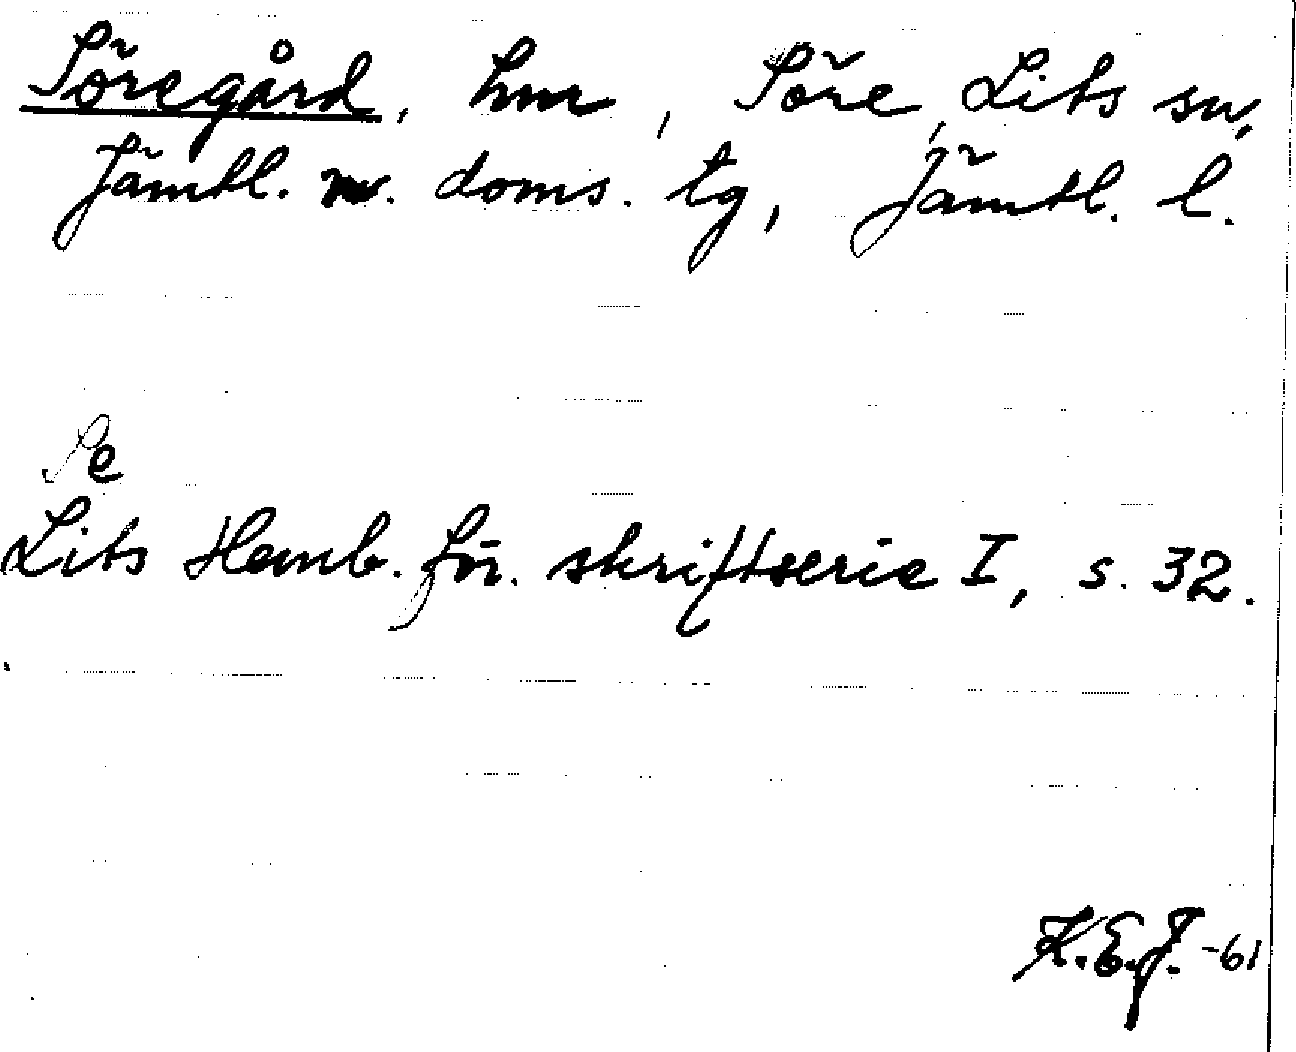 Söregård, hmr, Söre, Lits sn,
Jämtl. v. doms. tg, Jämtl. l.
Se
Lits Hemb. för. skriftserie I, s. 32.
K.E.J. -61